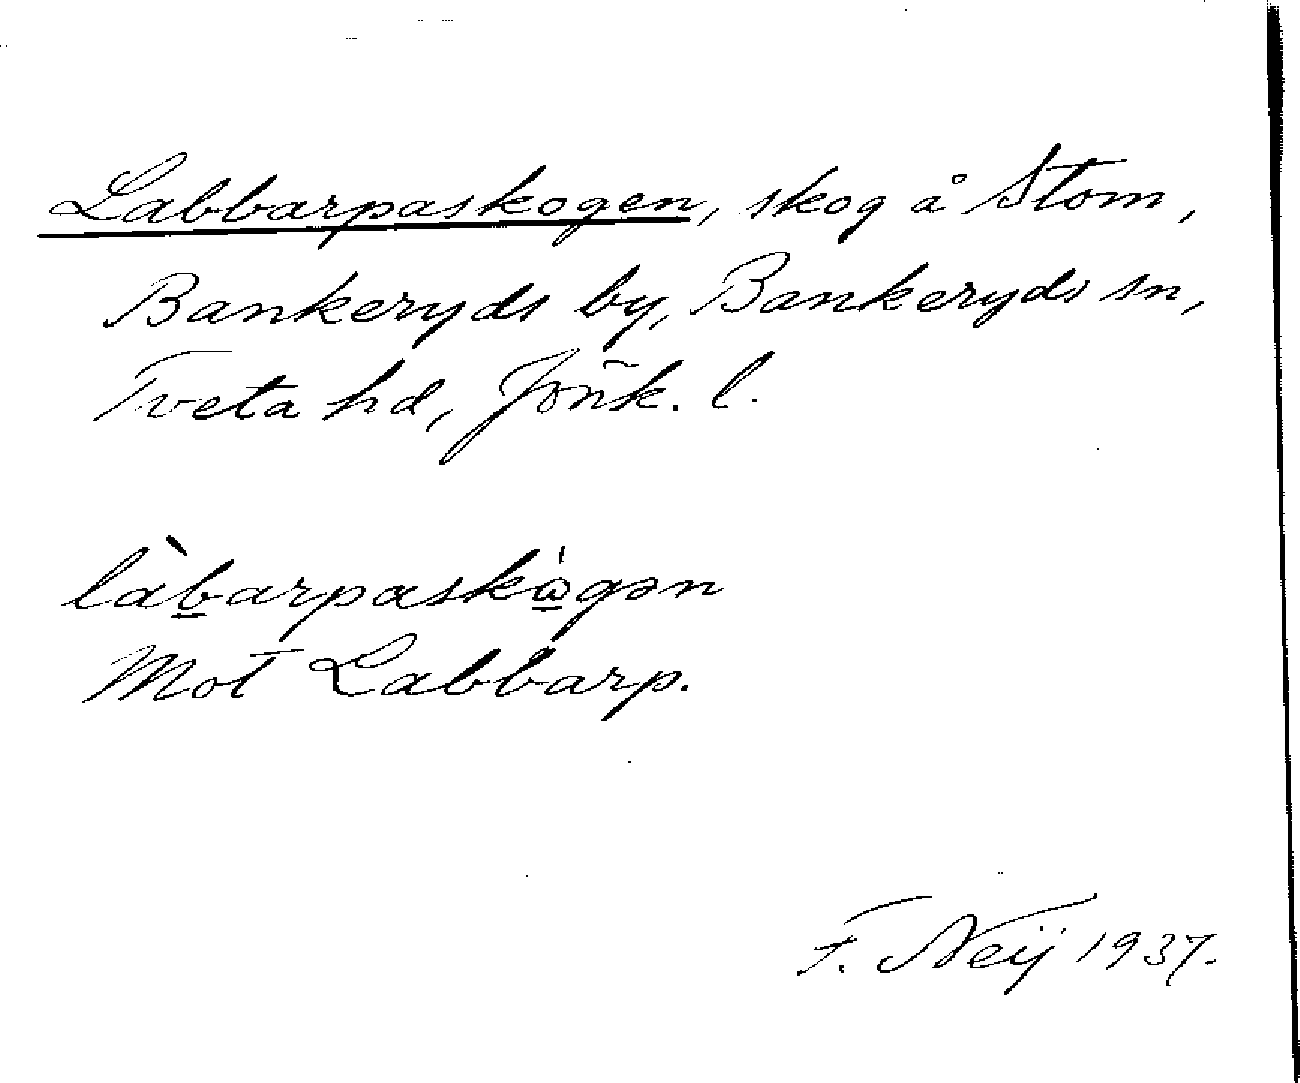 Labbarpaskogen, skog å Stom,
Bankeryds by, Bankeryds sn,
Tveta hd, Jönk. l.
làb̲arpaskὼ̲gən
Mot Labbarp.
F. Neij 1937.